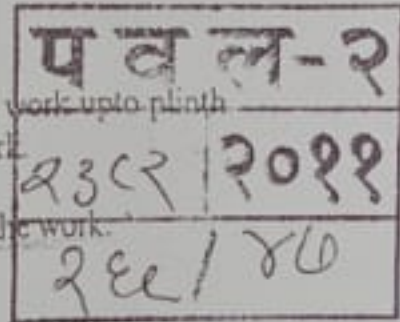 प व ल - २
work upto plinth
२३८२ २०११
the work.
२६ / ४७